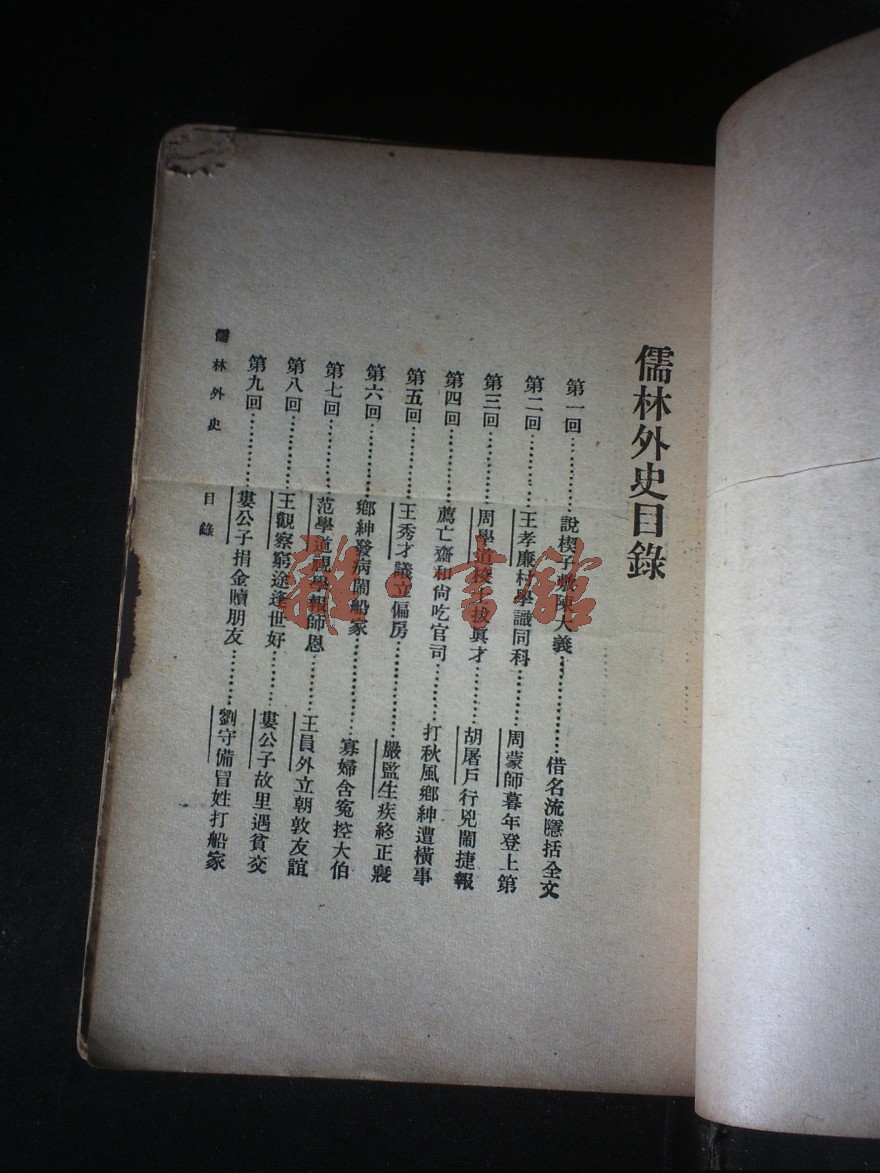 儒林外史目錄
第一回…………說楔子敷陳大義…………借名流隱括全文
第二回…………王孝廉村學識同科…………周蒙師暮年登上第
第三回…………周學道校士拔眞才…………胡屠戶行兇鬧捷報
第四回…………薦亡齋和尙吃官司…………打秋風鄕紳遭橫事
第五回…………王秀才議立偏房…………嚴監生疾終正寢
第六回…………鄕紳發病鬧船家…………寡婦含寃控大伯
第七回…………范學道視學報師恩…………王員外立朝敦友誼
第八回…………王觀察窮途逢世好…………婁公子故里遇貧交
第九回…………婁公子捐金贖朋友…………劉守備冒姓打船家
儒林外史 目錄
雜·書館